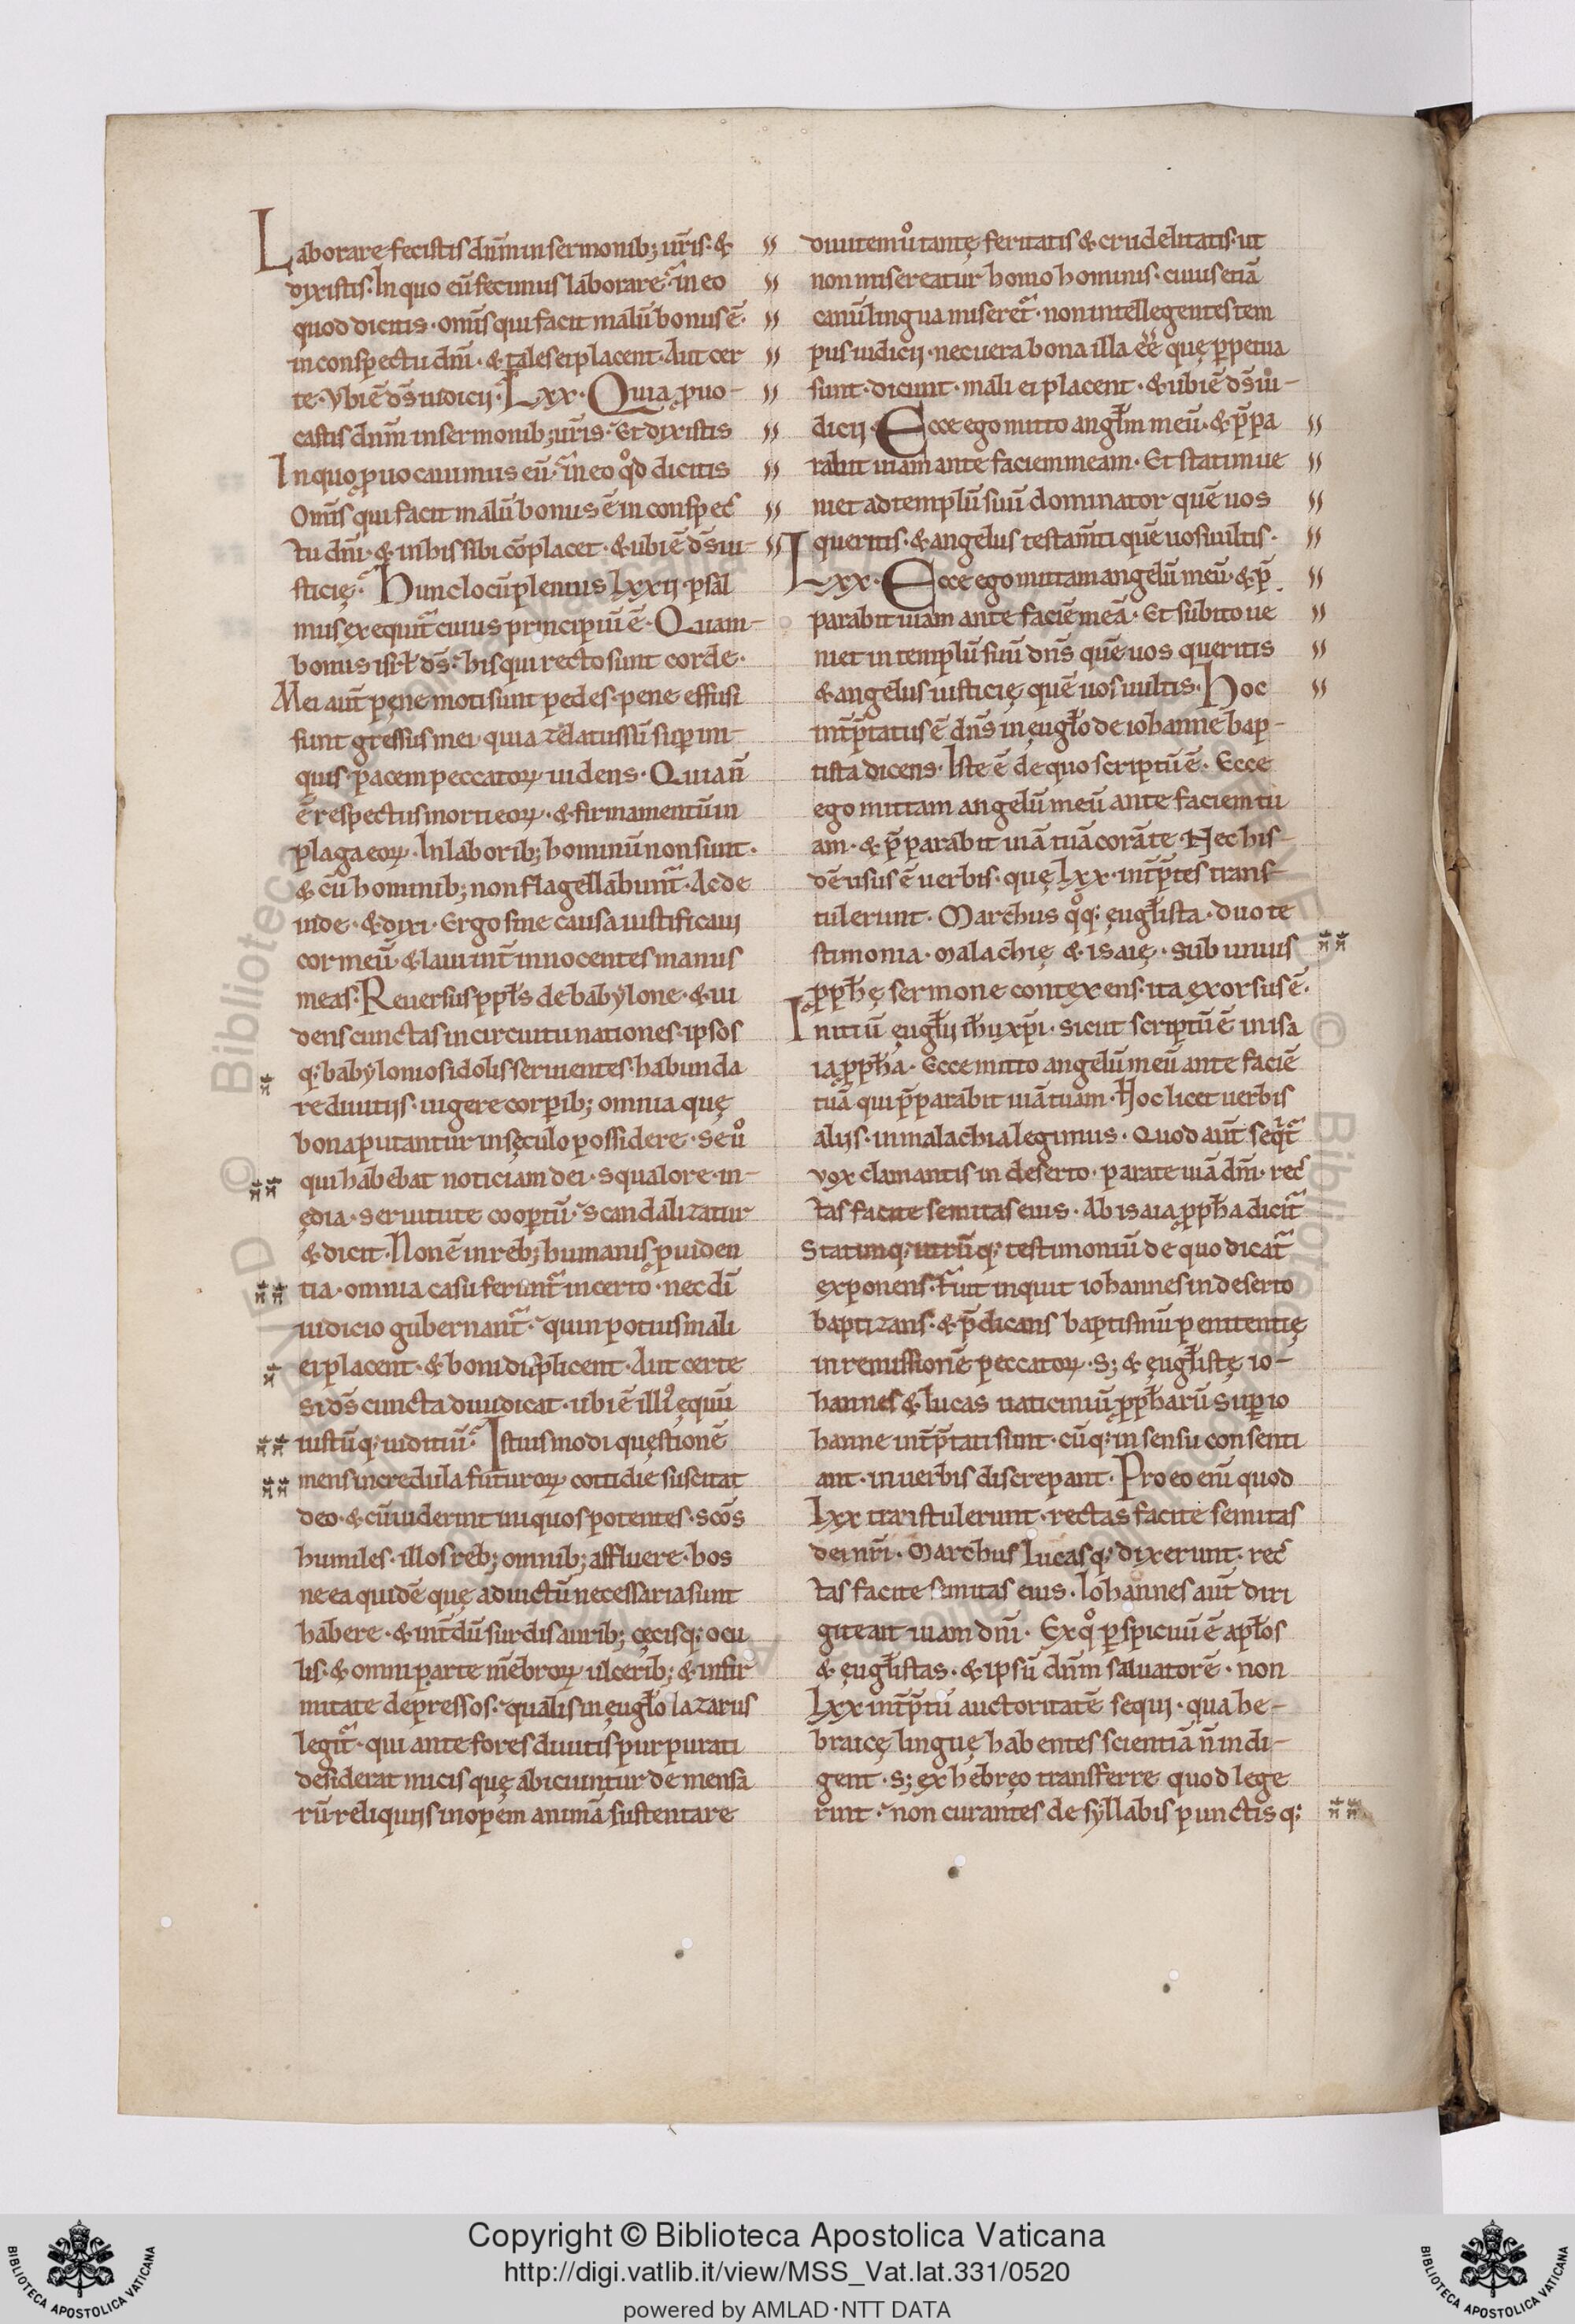 Laborare fecistis dn̄m in sermonib; ur̄is · &
dixistis · In quo eū fecimus laborare · in eo
quod dicitis · om̄s qui facit malū bonus ē ·
in conspectu dn̄i · & tales ei placent · Aut cer
te · Vbi ē ds̄ iudicij · Lxx · Quia ꝓuo-
castis dn̄m in sermonib; ur̄is · Et dixistis
In quo ꝓuocauimus eū · in eo qͦd dicitis
Om̄s qui facit malū bonus ē in conspec
tu dn̄i · & in his sibi cōplacet · & ubi ē ds̄ iu-
sticię · Hunc locū plenius lxxij · psal
mus exequit̄ cuius principiū ē · Quam-
bonus isrł ds̄ · his qui recto sunt corde ·
Mei aut̄ pęne moti sunt pedes · pene effusi
sunt gressus mei · quia zelatus sū suꝑ ini-
quis · pacem peccatoꝝ uidens · Quia n̄
ē respectus morti eoꝝ · & firmamentū in
plaga eoꝝ · In laborib; hominū non sunt ·
& cū hominib; non flagellabunt̄ · Ac de
inde · & dixi · Ergo sine causa iustificaui
cor meū · & laui int̄ innocentes manus
meas · Reuersus ppłs de babylone · & ui
dens cunctas in circuitu nationes · ipsos
q; babylonios idolis seruientes · habunda
re diuitijs · uigere corꝑib; omnia quę
bona putantur in sęculo possidere · Se uͦ
qui habebat noticiam dei · squalore · in-
ędia · seruitute cooꝑtū · scandalizatur
& dicit · Non ē in reb; humanis ꝓuiden
tia · omnia casu ferunt̄ incerto · nec dī
iudicio gubernant̄ · quin potius mali
ei placent · & boni displicent · Aut certe
si ds̄ cuncta diiudicat · ubi ē illiͦ ęquū
iustūq; iuditiū · Istiusmodi quęstionē
mens incredula futuroꝝ cottidie suscitat
deo · & cū uiderint iniquos potentes · scōs
humiles · illos reb; omnib; affluere · hos
ne ea quidē quę ad uictū necessaria sunt
habere · & int̄dū surdis aurib; cęcisq; ocu
lis · & omni parte mēbroꝝ ulcerib; & infir
mitate depressos · qualis in ęuāgło lazarus
legit̄ · qui ante fores diuitis purpurati
desiderat micis quę abiciuntur de mensa
rū reliquijs inopem animā sustentare
diuitem uͦ tantę feritatis & crudelitatis · ut
non misereatur homo hominis · cuius etiā
canū lingua miseret̄ · non intellegentes tem
pus iudicij · nec uera bona illa ēē quę ꝑpetua
sunt · dicunt · mali ei placent · & ubi ē ds̄ iu-
dicij · Ecce ego mitto angłm meū · & p̄pa
rabit uiam ante faciem meam · Et statim ue
niet ad templū suū dominator quē uos
queritis · & angelus testam̄ti quē uos uultis ·
Lxx · Ecce ego mittam angelū meū · & p̄
parabit uiam ante faciē meā · Et subito ue
niet in templū suū dn̄s quē uos queritis
& angelus iusticię quē uos uultis · Hoc
int̄p̄tatus ē dn̄s in ęuāgło de iohanne bap-
tista dicens · Iste ē de quo scriptū ē · Ecce
ego mittam angelū meū ante faciem tu
am · & p̄parabit uiā tuā corā te · Hec his
dē usus ē uerbis · quę lxx · int̄p̄tes trans
tulerunt · Marchus qͦq; ęuāgłista · duo te
stimonia · malachię & isaię · sub unius
ꝓphę sermone contexens · ita exorsus ē ·
Initiū ęuāgłij ih̄u xp̄i · sicut scriptū ē in isa
ia ꝓpha · Ecce mitto angelū meū ante faciē
tuā qui p̄parabit uiā tuam · Hoc licet uerbis
alijs · in malachia legimus · Quod aut̄ seqͥt̄
vox clamantis in deserto · parate uiā dn̄i · rec
tas facite semitas eius · Ab isaia ꝓpha dicit̄
Statimq; utrūq; testimoniū de quo dicat̄
exponens · Fuit inquit iohannes in deserto
baptizans · & p̄dicans baptismū penitentię
in remissionē peccatoꝝ · S; & ęuāgłistę io-
hannes & lucas uaticiniū ꝓpharū suꝑ io
hanne int̄p̄tati sunt · cūq; in sensu consenti
ant · in uerbis discrepant · Pro eo eni quod
lxx transtulerunt · rectas facite semitas
dei nr̄i · Marchus Lucasq; dixerunt · rec
tas facite semitas eius · Iohannes aut̄ diri
gite ait uiam dn̄i · Ex qͦ ꝑspicuū ē apłos
& ęuāgłistas · & ipsū dn̄m saluatorē · non
lxx int̄p̄tū auctoritatē sequi · qua he-
braicę linguę habentes scientiā n̄ indi-
gent · S; ex hebręo transferre quod lege
runt · non curantes de syllabis punctisq;
Copyright © Biblioteca Apostolica Vaticana
http://digi.vatlib.it/view/MSS_Vat.lat.331/0520
powered by AMLAD·NTT DATA
BIBLIOTECA APOSTOLICA VATICANA
BIBLIOTECA APOSTOLICA VATICANA